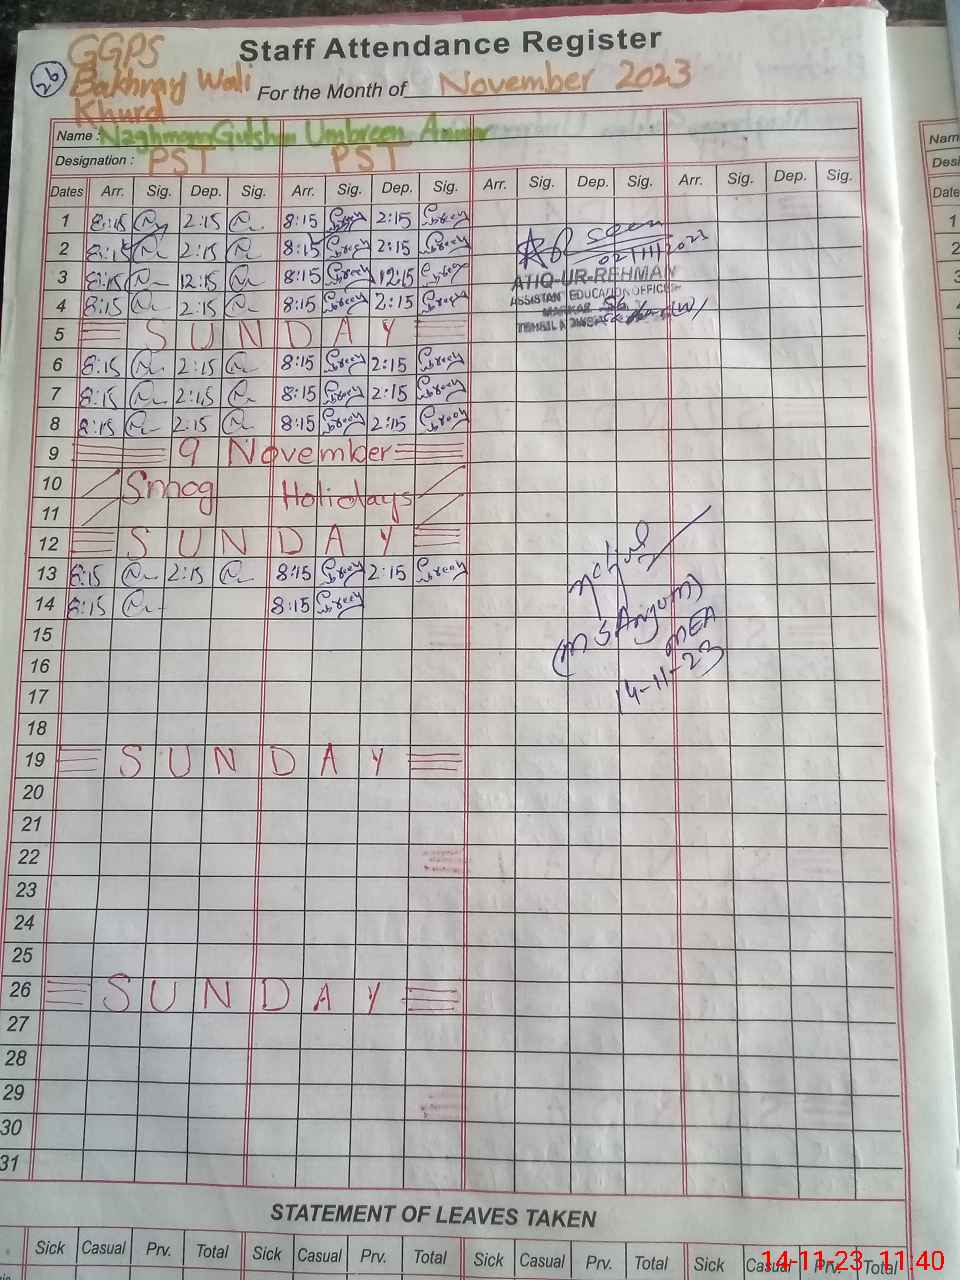 GGPS
26
Bakhray Wali
Khurd
Staff Attendance Register
For the Month of November 2023
Name : Naghmana Gulshan Umbreen Anwar
Designation : PST PST
Dates Arr. Sig. Dep. Sig. Arr. Sig. Dep. Sig. Arr. Sig. Dep. Sig. Arr. Sig. Dep. Sig.
1 8:15 2:15 8:15 2:15
2 8:15 2:15 8:15 2:15 seen
02/11/2023
3 8:15 12:15 8:15 12:15 ATIQ-UR-REHMAN
4 8:15 2:15 8:15 2:15 ASSISTANT EDUCATION OFFICER
MARKAZ
TEHSIL (W)
5 SUNDAY
6 8:15 2:15 8:15 2:15
7 8:15 2:15 8:15 2:15
8 8:15 2:15 8:15 2:15
9 9 November
10 Smog Holidays
11
12 SUNDAY
13 8:15 2:15 8:15 2:15
14 8:15 8:15
15 (M S Anjum)
MEA
16
14-11-23
17
18
19 SUNDAY
20
21
22
23
24
25
26 SUNDAY
27
28
29
30
31
STATEMENT OF LEAVES TAKEN
Sick Casual Prv. Total Sick Casual Prv. Total Sick Casual Prv. Total Sick Casual Prv. Total
14-11-23 11:40
Nam
Desi
Date
1
2
3
4
5
6
7
8
9
10
11
12
13
14